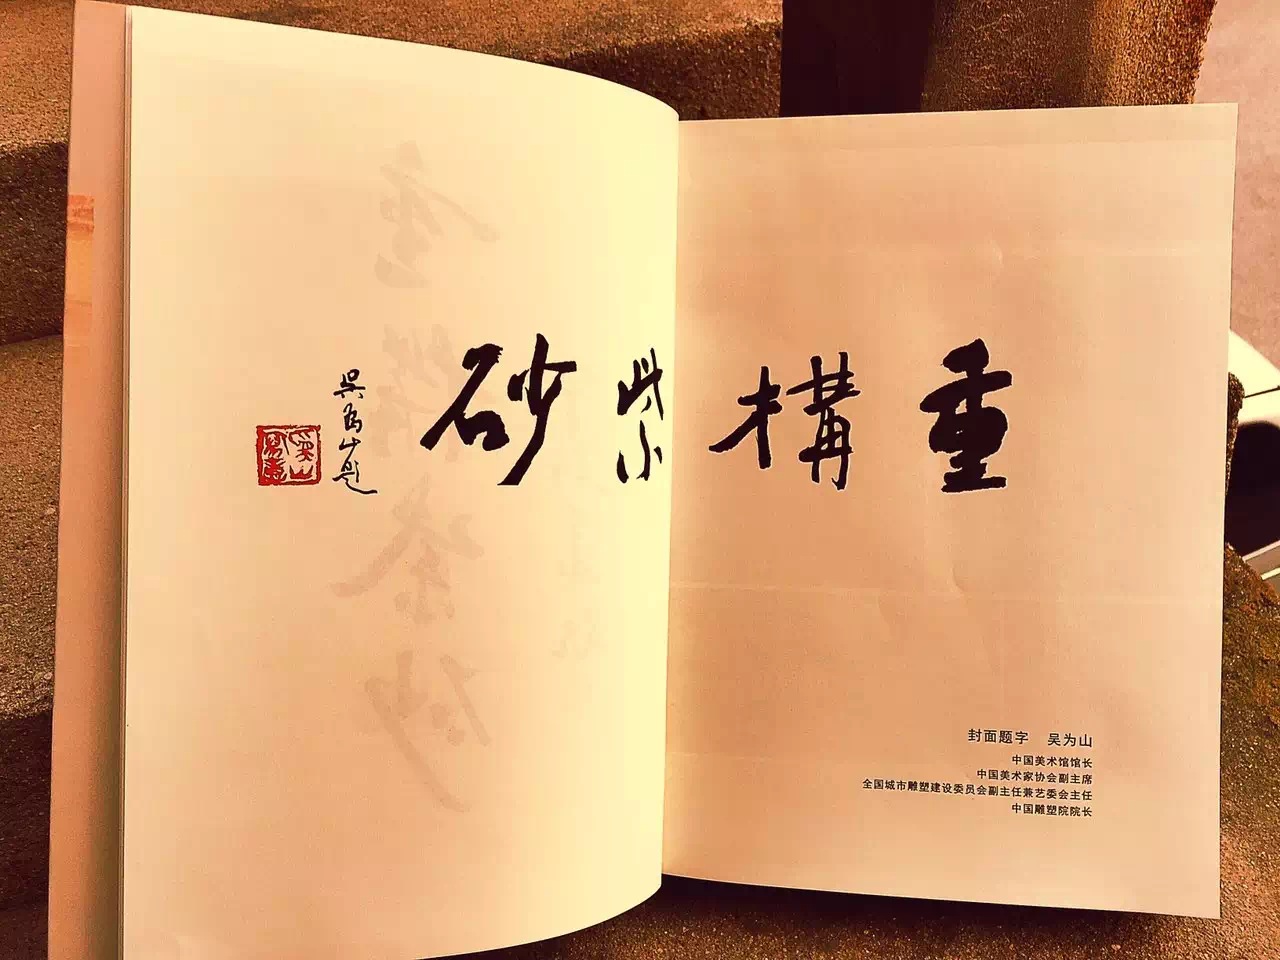 重構紫砂
吴为山题
封面题字 吴为山
中国美术馆馆长
中国美术家协会副主席
全国城市雕塑建设委员会副主任兼艺委会主任
中国雕塑院院长